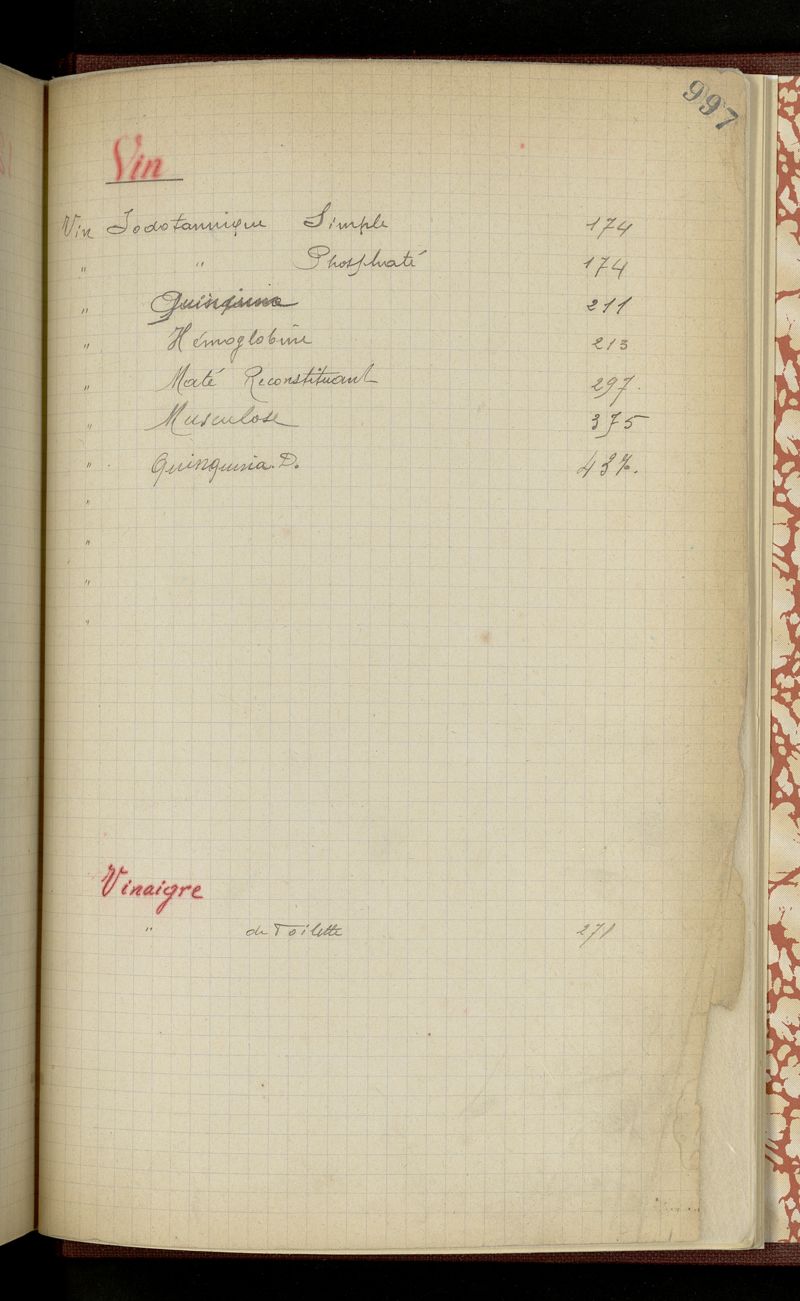 997
Vin
Vin Iodotannique Simple 174
" " Phosphaté 174
" Quinquina 211
" Hémoglobine 213
" Maté Reconstituant 297.
" Musculose 375
" Quinquina. D. 437.
"
"
"
"
Vinaigre
" de Toilette 271